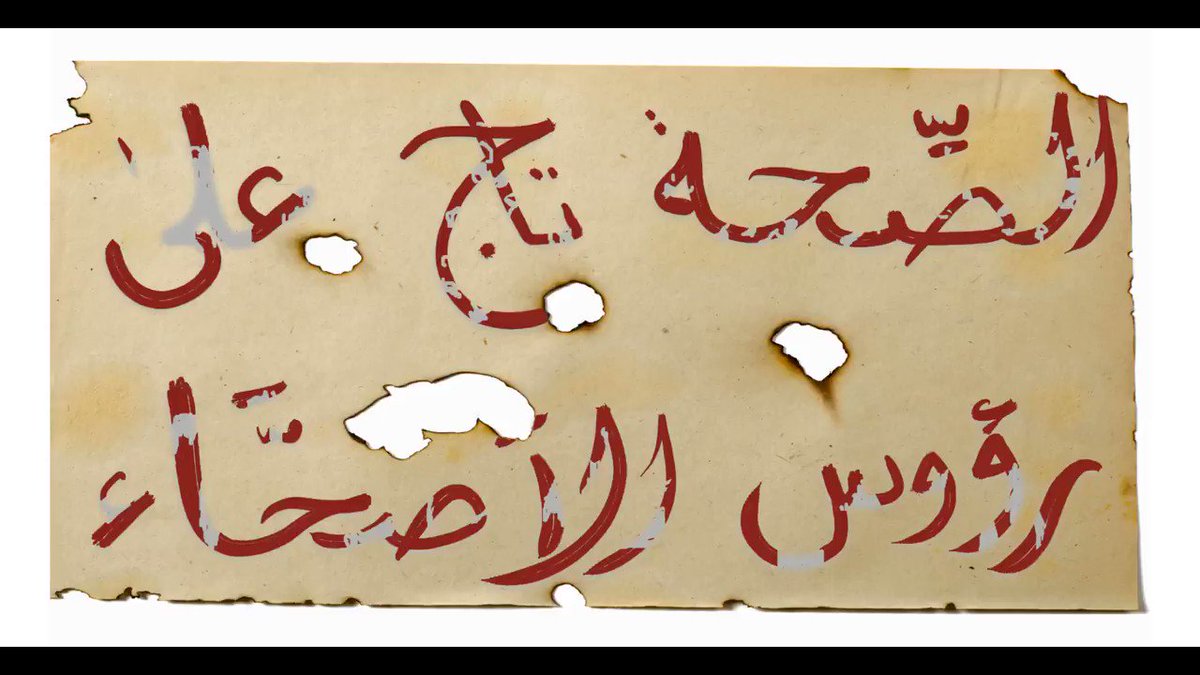 الصِّحة تاج على
رؤوس الأصحَّاء